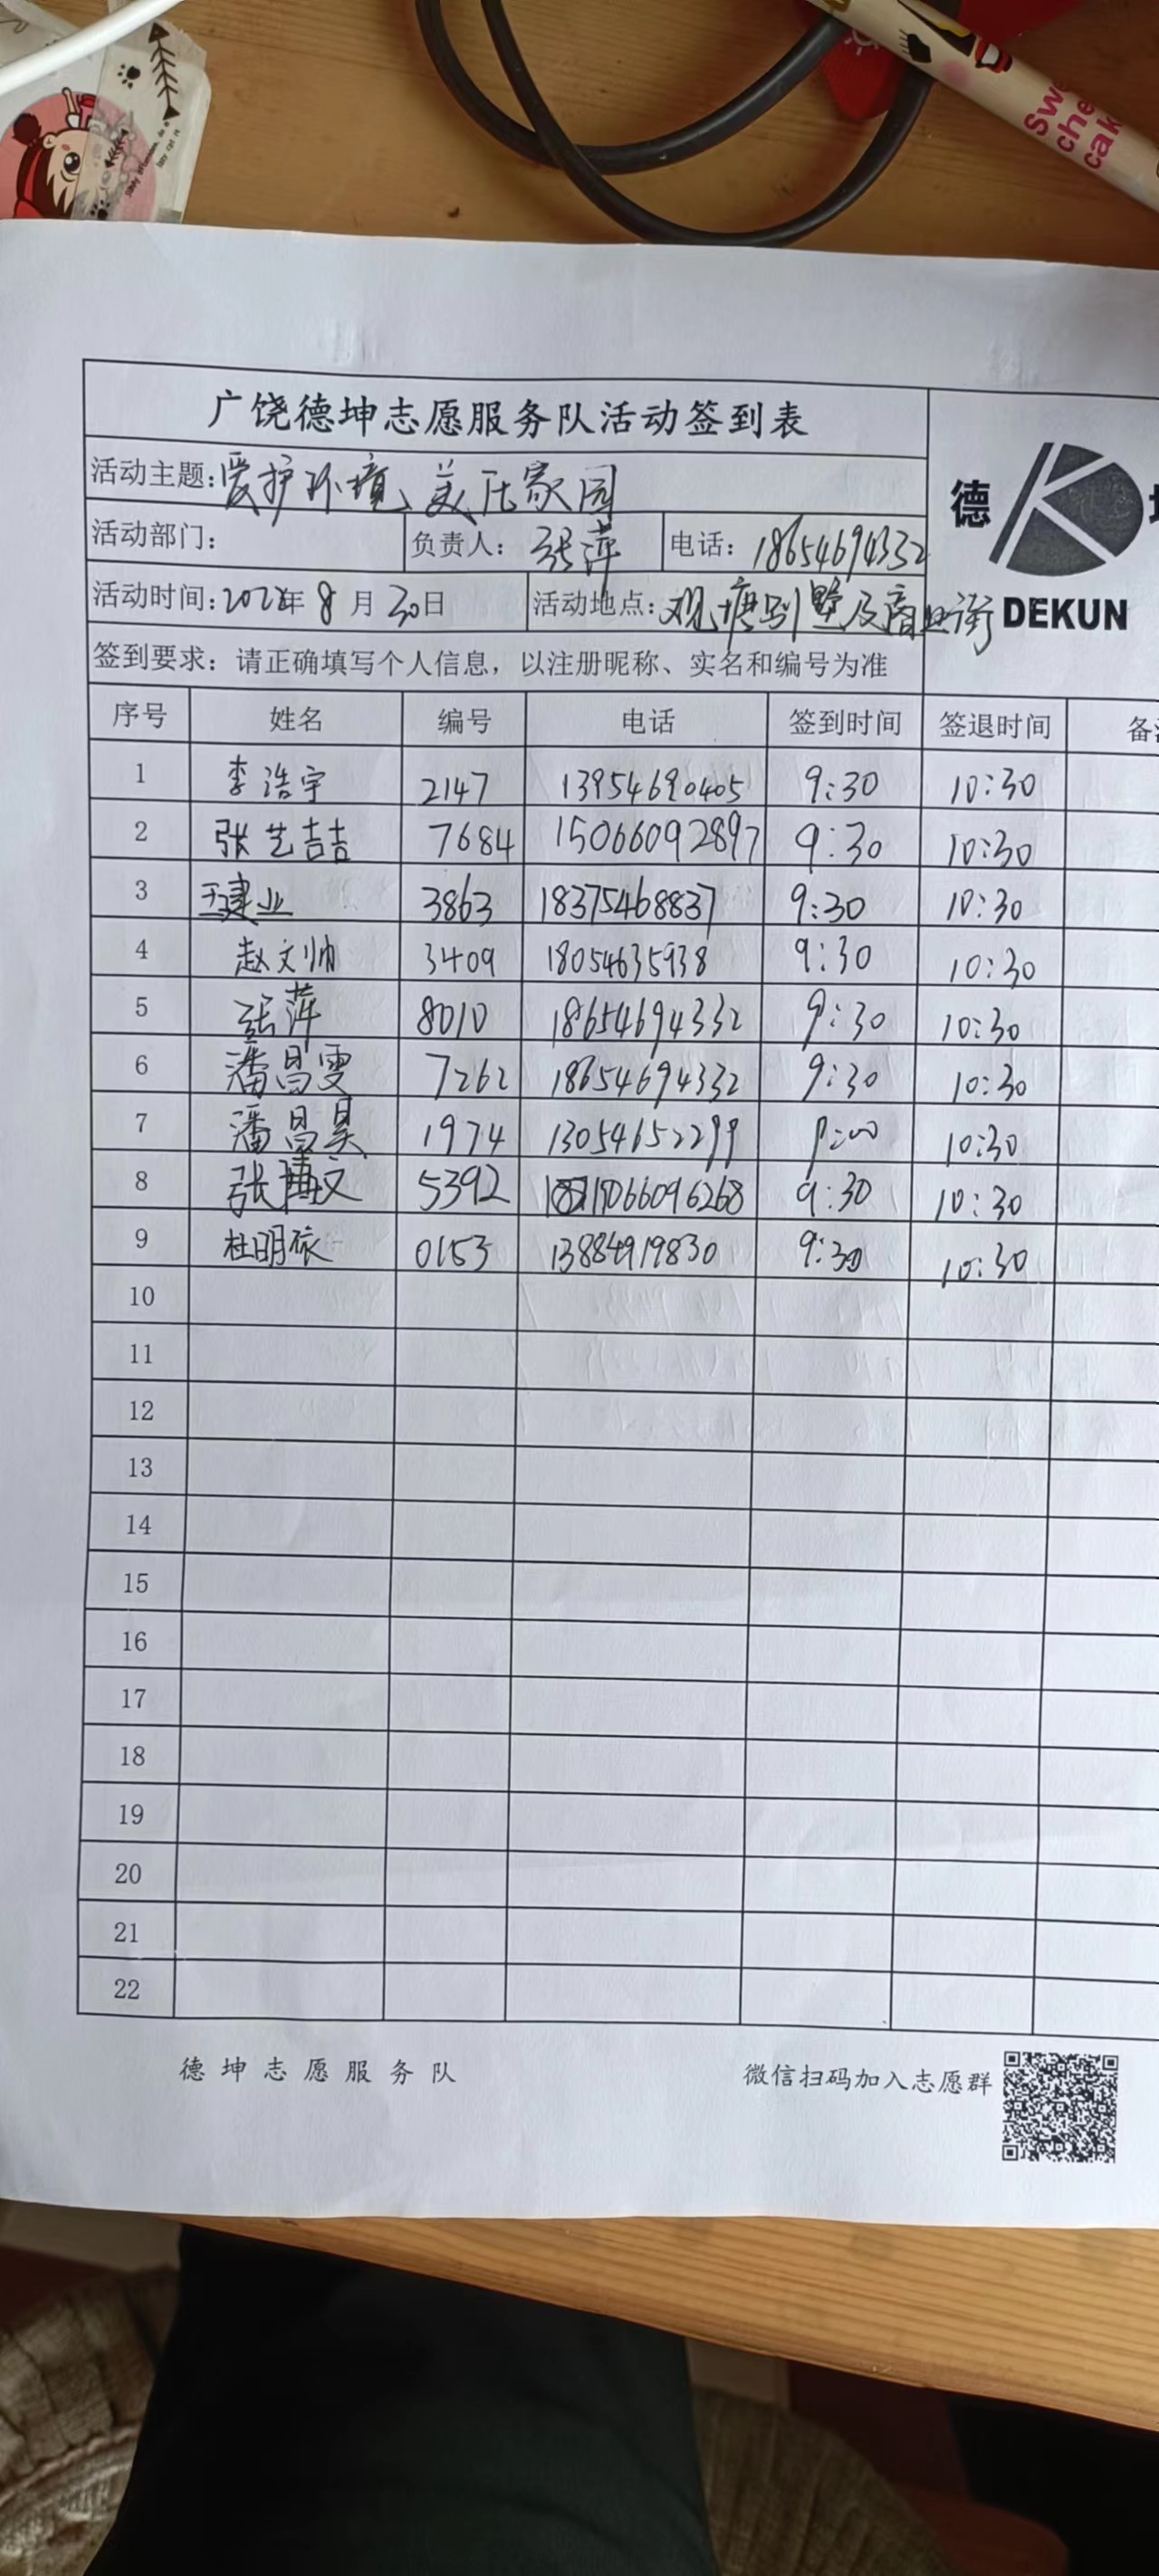 Sweet
cheese
cak
广饶德坤志愿服务队活动签到表
德 K
DEKUN
活动主题：爱护环境、美化家园
活动部门： 负责人：张萍 电话：18654694332
活动时间：年 8 月 30 日 活动地点：观塘别墅及商业街
签到要求：请正确填写个人信息，以注册昵称、实名和编号为准
序号 姓名 编号 电话 签到时间 签退时间 备
1 李浩宇 2147 13954690405 9:30 10:30
2 张艺喆 7684 15066092897 9:30 10:30
3 王建业 3863 18375468837 9:30 10:30
4 赵文帅 3409 18054635938 9:30 10:30
5 张萍 8010 18654694332 9:30 10:30
6 潘昌雯 7262 18654694332 9:30 10:30
7 潘昌昊 1974 13054652299 9:00 10:30
8 张博文 5392 15066096268 9:30 10:30
9 杜明 0153 13884919830 9:30 10:30
10
11
12
13
14
15
16
17
18
19
20
21
22
德坤志愿服务队 微信扫码加入志愿群